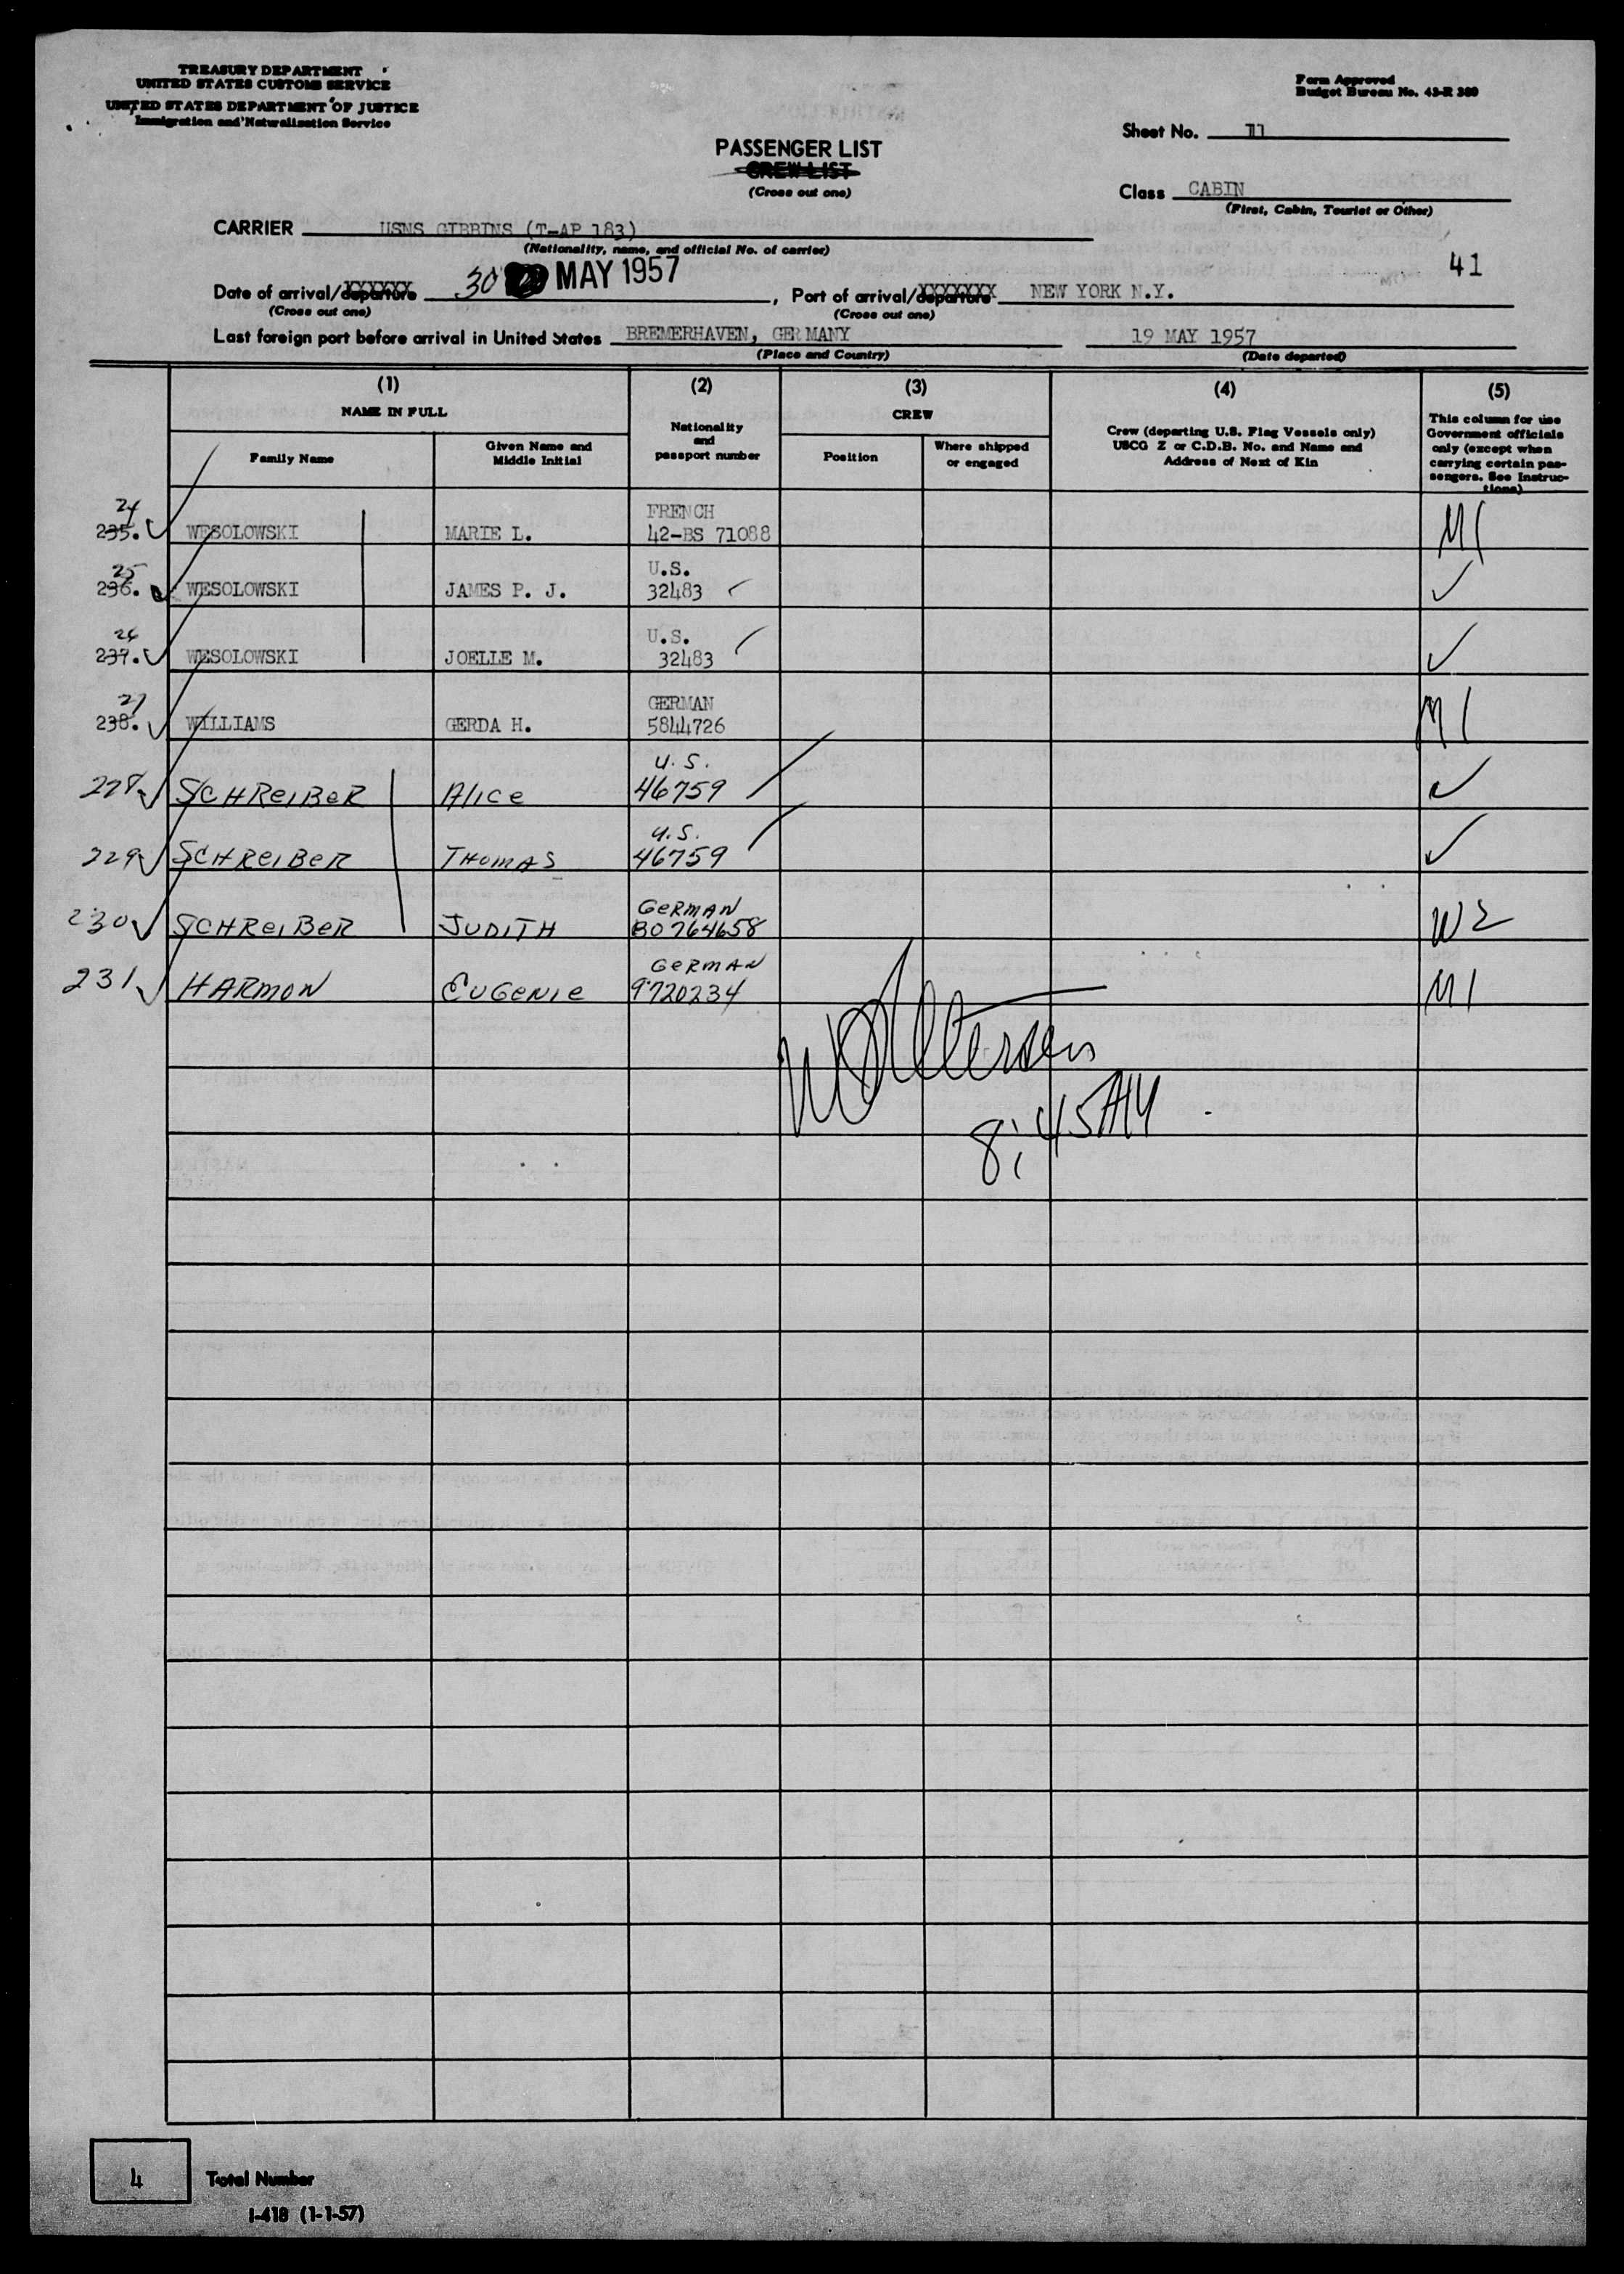 TREASURY DEPARTMENT
UNITED STATES CUSTOMS SERVICE
UNITED STATES DEPARTMENT OF JUSTICE
Immigration and Naturalization Service
Form Approved
Budget Bureau No. 43-R 380
Sheet No. 11
PASSENGER LIST
CREW LIST
(Cross out one)
Class CABIN
(First, Cabin, Tourist or Other)
CARRIER USNS GIBBINS (T-AP 183)
(Nationality, name, and official No. of carrier)
41
Date of arrival/departure 30 MAY 1957, Port of arrival/departure NEW YORK N.Y.
(Cross out one) (Cross out one)
Last foreign port before arrival in United States BREMERHAVEN, GERMANY 19 MAY 1957
(Place and Country) (Date departed)
(1) (2) (3) (4) (5)
NAME IN FULL
Family Name
Given Name and Middle Initial
Nationality and passport number
CREW
Position
Where shipped or engaged
Crew (departing U.S. Flag Vessels only)
USCG Z or C.D.B. No. and Name and
Address of Next of Kin
This column for use
Government officials
only (except when
carrying certain pas-
sengers. See Instruc-
tions)
24 FRENCH
235. WESOLOWSKI MARIE L. 42-BS 71088 M1
25 U.S.
236. WESOLOWSKI JAMES P. J. 32483 ✓ ✓
26 U.S.
237. WESOLOWSKI JOELLE M. 32483 ✓ ✓
27 GERMAN
238. WILLIAMS GERDA H. 5844726 M1
U.S.
228 SCHREIBER Alice 46759 ✓
U.S.
229 SCHREIBER THOMAS 46759 ✓
GERMAN
230 SCHREIBER JUDITH B0764658 W2
GERMAN
231 HARMON EUGENIE 9720234 M1
8:45AM
4 Total Number
I-418 (1-1-57)